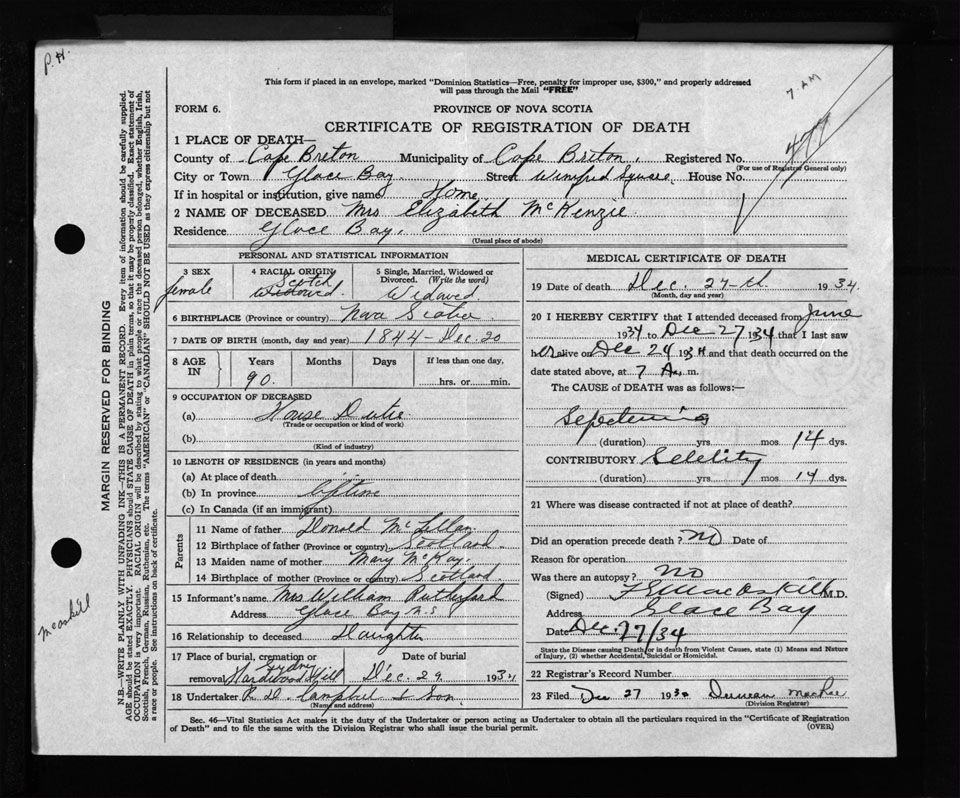 P. H.
7 AM
This form if placed in an envelope, marked "Dominion Statistics—Free, penalty for improper use, $300," and properly addressed
will pass through the Mail "FREE"
FORM 6.
PROVINCE OF NOVA SCOTIA
CERTIFICATE OF REGISTRATION OF DEATH
1 PLACE OF DEATH—
County of Cape Breton Municipality of Cape Briton. Registered No.
(For use of Registrar General only)
City or Town Glace Bay. Street Winifred Square. House No.
If in hospital or institution, give name Home
2 NAME OF DECEASED Mrs Elizabeth McKenzie
Residence Glace Bay.
(Usual place of abode)
PERSONAL AND STATISTICAL INFORMATION
3 SEX
female
4 RACIAL ORIGIN
Scotch
Widowed.
5 Single, Married, Widowed or
Divorced. (Write the word)
Widowed.
6 BIRTHPLACE (Province or country) Nova Scotia
7 DATE OF BIRTH (month, day and year) 1844 - Dec. 20
8 AGE
IN
Years
90.
Months
Days
If less than one day,
hrs. or min.
9 OCCUPATION OF DECEASED
(a) House Dutie
(Trade or occupation or kind of work)
(b)
(Kind of industry)
10 LENGTH OF RESIDENCE (in years and months)
(a) At place of death
(b) In province liftime
(c) In Canada (if an immigrant)
Parents
11 Name of father Donald McLellan
12 Birthplace of father (Province or country) Scotland.
13 Maiden name of mother Mary McKay.
14 Birthplace of mother (Province or country) Scotland.
15 Informant's name Mrs William Rutherford
Address Glace Bay N.S
16 Relationship to deceased Daughter
17 Place of burial, cremation or
removal Sydney
Hardwood Hill
Date of burial
Dec. 29 1934
18 Undertaker R. D. Campbel & Son
(Name and address)
MEDICAL CERTIFICATE OF DEATH
19 Date of death Dec. 27-th. 1934.
(Month, day and year)
20 I HEREBY CERTIFY that I attended deceased from June
1934 to Dec 27 1934 that I last saw
her alive on Dec 24 1934 and that death occurred on the
date stated above, at 7 A. m.
The CAUSE OF DEATH was as follows:—
(duration) yrs. mos. 14 dys.
CONTRIBUTORY
(duration) yrs. mos. 14 dys.
21 Where was disease contracted if not at place of death?
Did an operation precede death? no Date of
Reason for operation
Was there an autopsy? no
(Signed) M.D.
Address Glace Bay
Date Dec. 27/34
State the Disease causing Death, or in death from Violent Causes, state (1) Means and Nature
of Injury, (2) whether Accidental, Suicidal or Homicidal.
22 Record's Record Number
23 Filed Dec 27 193 Duncan MacRae
(Division Registrar)
Sec. 46—Vital Statistics Act makes it the duty of the Undertaker or person acting as Undertaker to obtain all the particulars required in the "Certificate of Registration
of Death" and to file the same with the Division Registrar who shall issue the burial permit.
(OVER)
MARGIN RESERVED FOR BINDING
N.B.—WRITE PLAINLY WITH UNFADING INK—THIS IS A PERMANENT RECORD. Every item of information should be carefully supplied.
AGE should be stated EXACTLY. PHYSICIANS should STATE CAUSE OF DEATH in plain terms, so that it may be properly classified. Exact statement of
OCCUPATION is very important. RACIAL ORIGIN will be described by stating to what people or race the deceased person belonged, whether English, Irish,
Scottish, French, German, Russian, Ruthenian, etc. The terms "AMERICAN" or "CANADIAN" SHOULD NOT BE USED as they express citizenship but not
a race or people. See instructions on back of certificate.
McAskill